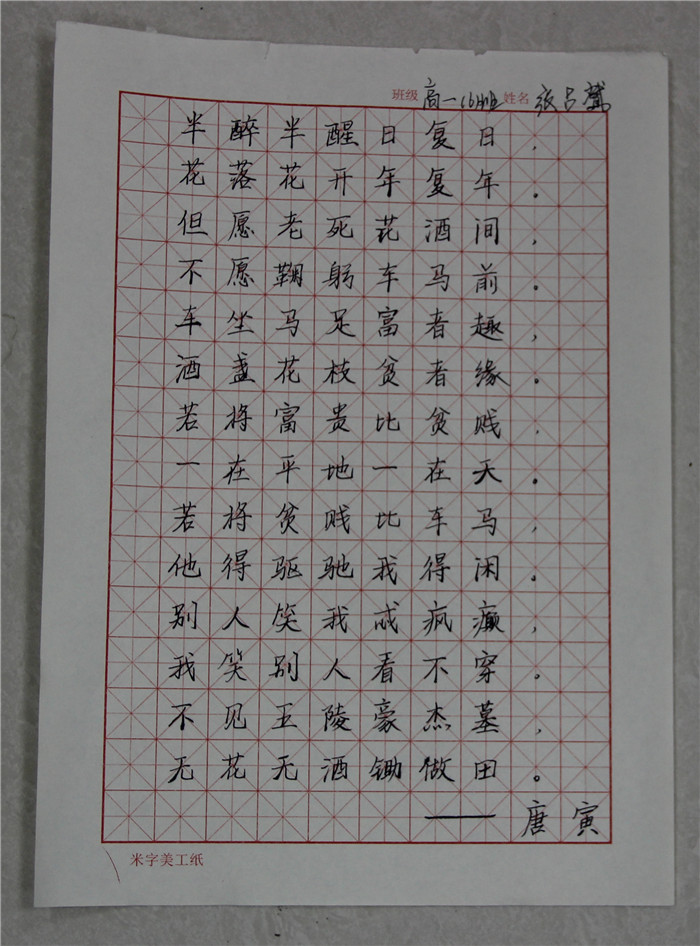 班级 高一(6)班 姓名 张占
半醉半醒日复日，
花落花开年复年。
但愿老死花酒间，
不愿鞠躬车马前。
车尘马足富者趣，
酒盏花枝贫者缘。
若将富贵比贫贱，
一在平地一在天。
若将贫贱比车马，
他得驱驰我得闲。
别人笑我忒疯癫，
我笑别人看不穿。
不见五陵豪杰墓，
无花无酒锄做田。
——唐寅
米字美工纸